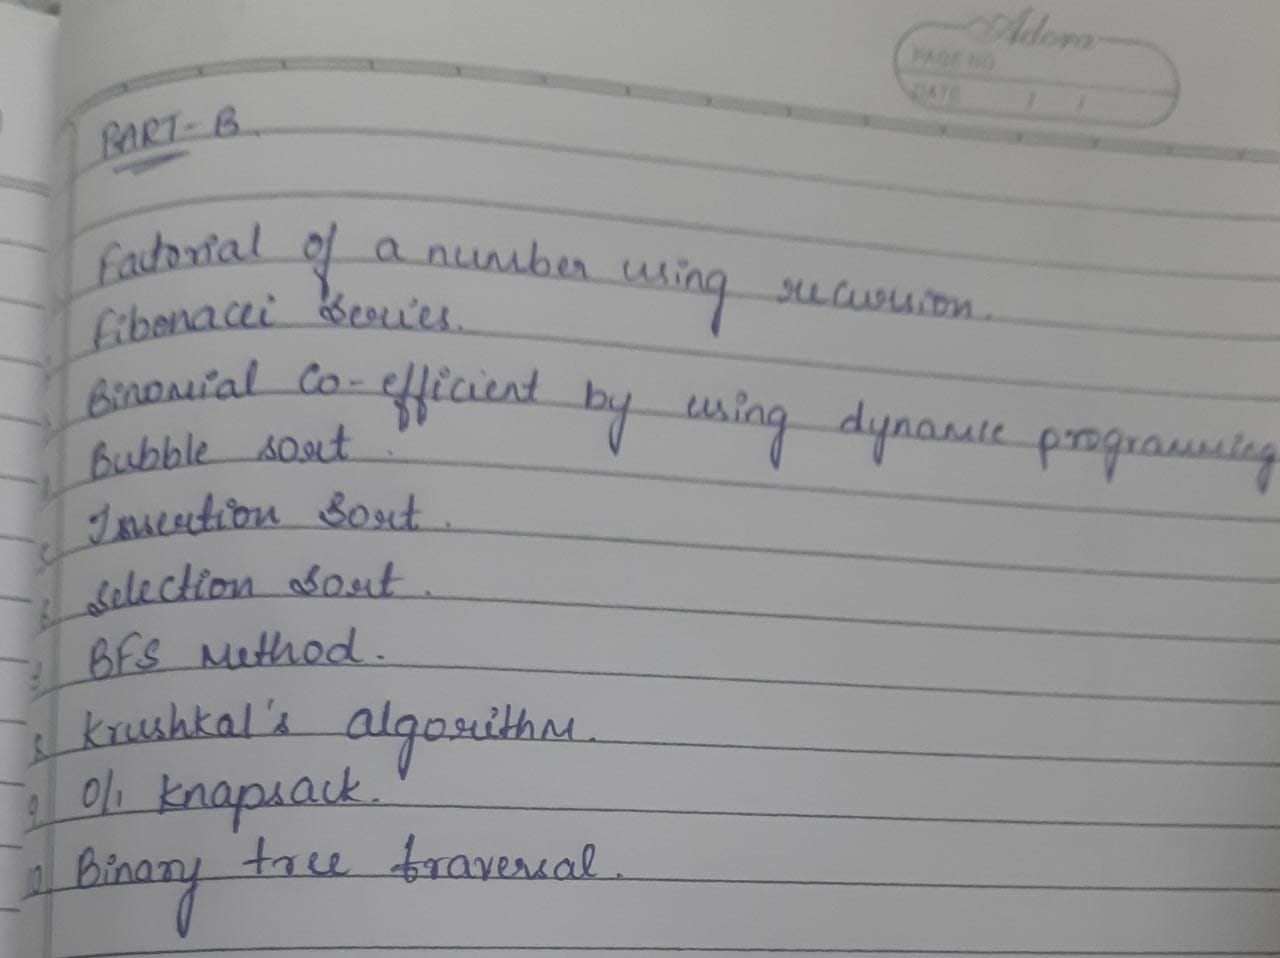 Adora
PAGE NO.
DATE / /
PART-B.
Factorial of a number using recursion.
Fibonacci Series.
Binomial Co-efficient by using dynamic programming
Bubble sort.
5 Insertion Sort.
6 Selection Sort.
7 BFS Method.
8 Krushkal's algorithm.
9 0/1 knapsack.
10 Binary tree traversal.